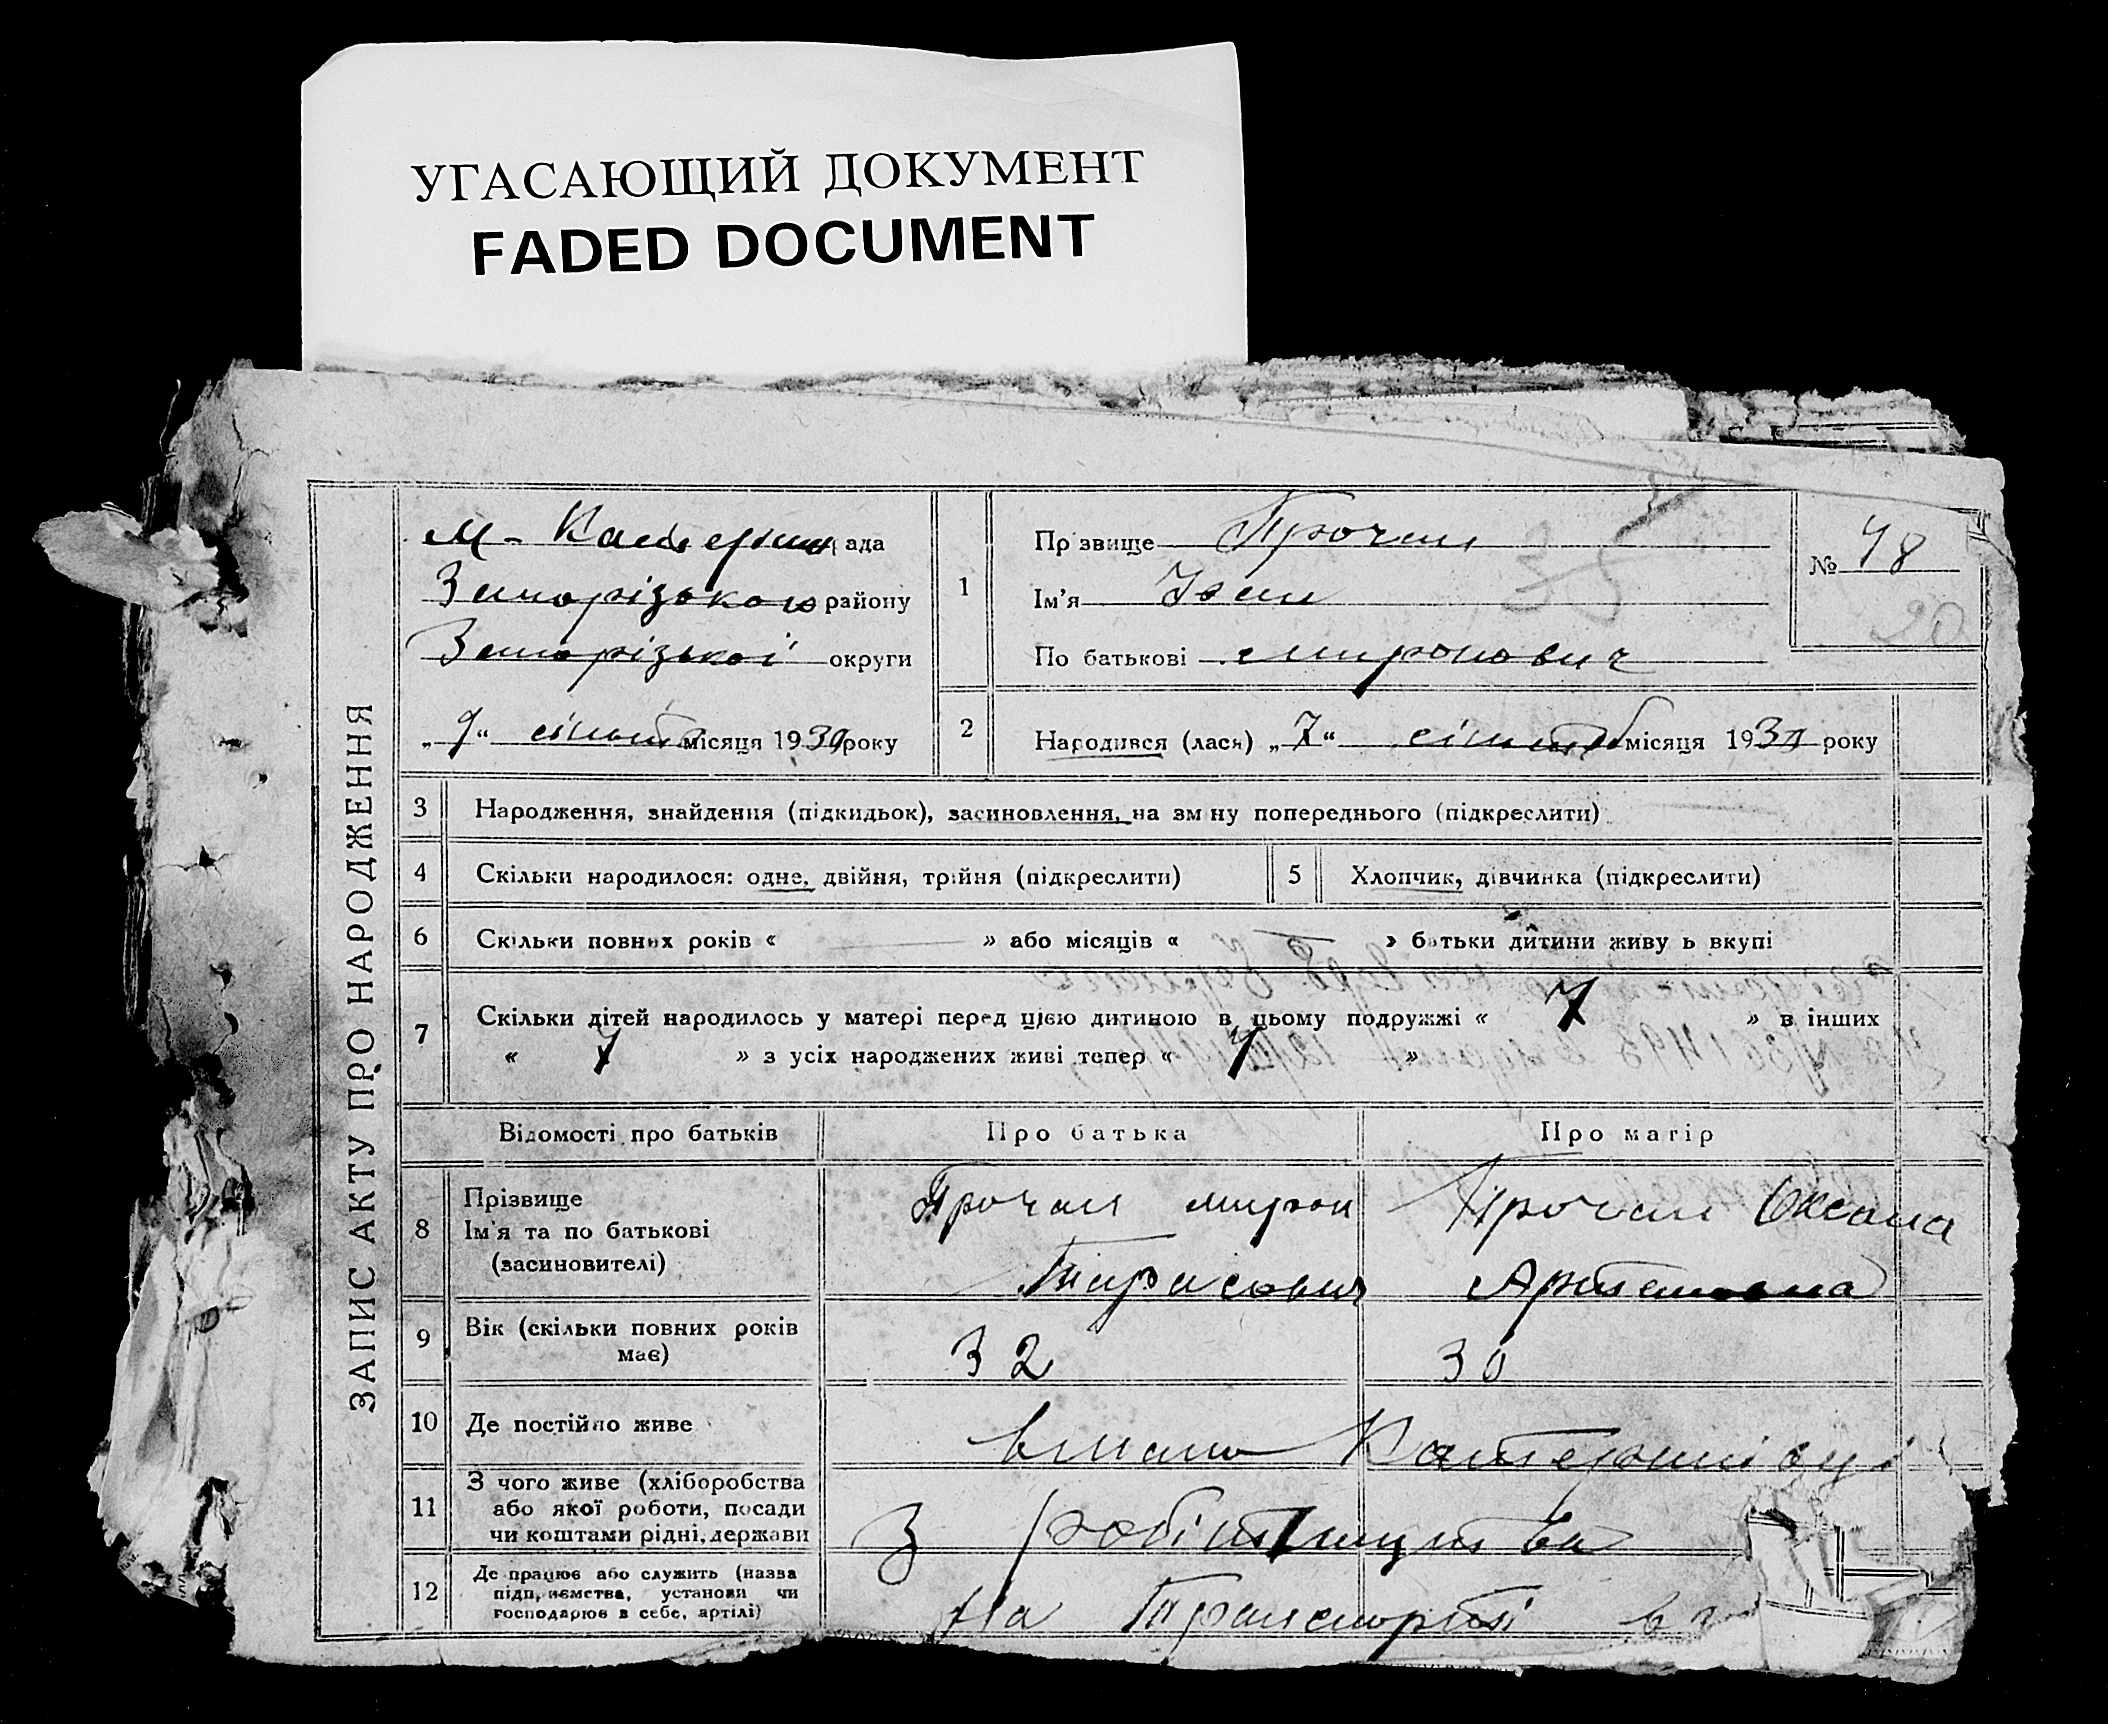 УГАСАЮЩИЙ ДОКУМЕНТ
FADED DOCUMENT
ЗАПИС АКТУ ПРО НАРОДЖЕННЯ
м- Катерин ада
Запорізького району
Запорізької округи
„9“ місяця 1930 року
1
Пр звище Прочан
Ім'я Іван
По батькові Миронович
№ 48
20
2
Народився (лася) „7“ місяця 1930 року
3 Народження, знайдення (підкидьок), засиновлення, на зм ну попереднього (підкреслити)
4 Скільки народилося: одне, двійня, трійня (підкреслити)
5 Хлопчик, дівчинка (підкреслити)
6 Скільки повних років « — » або місяців « — » батьки дитини живу ь вкупі
7 Скільки дітей народилось у матері перед цією дитиною в цьому подружжі « 7 » в інших
« 7 » з усіх народжених живі тепер « 7 »
Відомості про батьків Про батька Про матір
8 Прізвище
Ім'я та по батькові
(засиновителі)
Прочан Мирон
Тарасович
Прочан Оксана
Артемовна
9 Вік (скільки повних років
має)
32 30
10 Де постійно живе
Катеринівці
11 З чого живе (хліборобства
або якої роботи, посади
чи коштами рідні, держави
З робітництва
12 Де працює або служить (назва
підприємства, установи чи
господарює в себе, артілі)
На Транспорті в